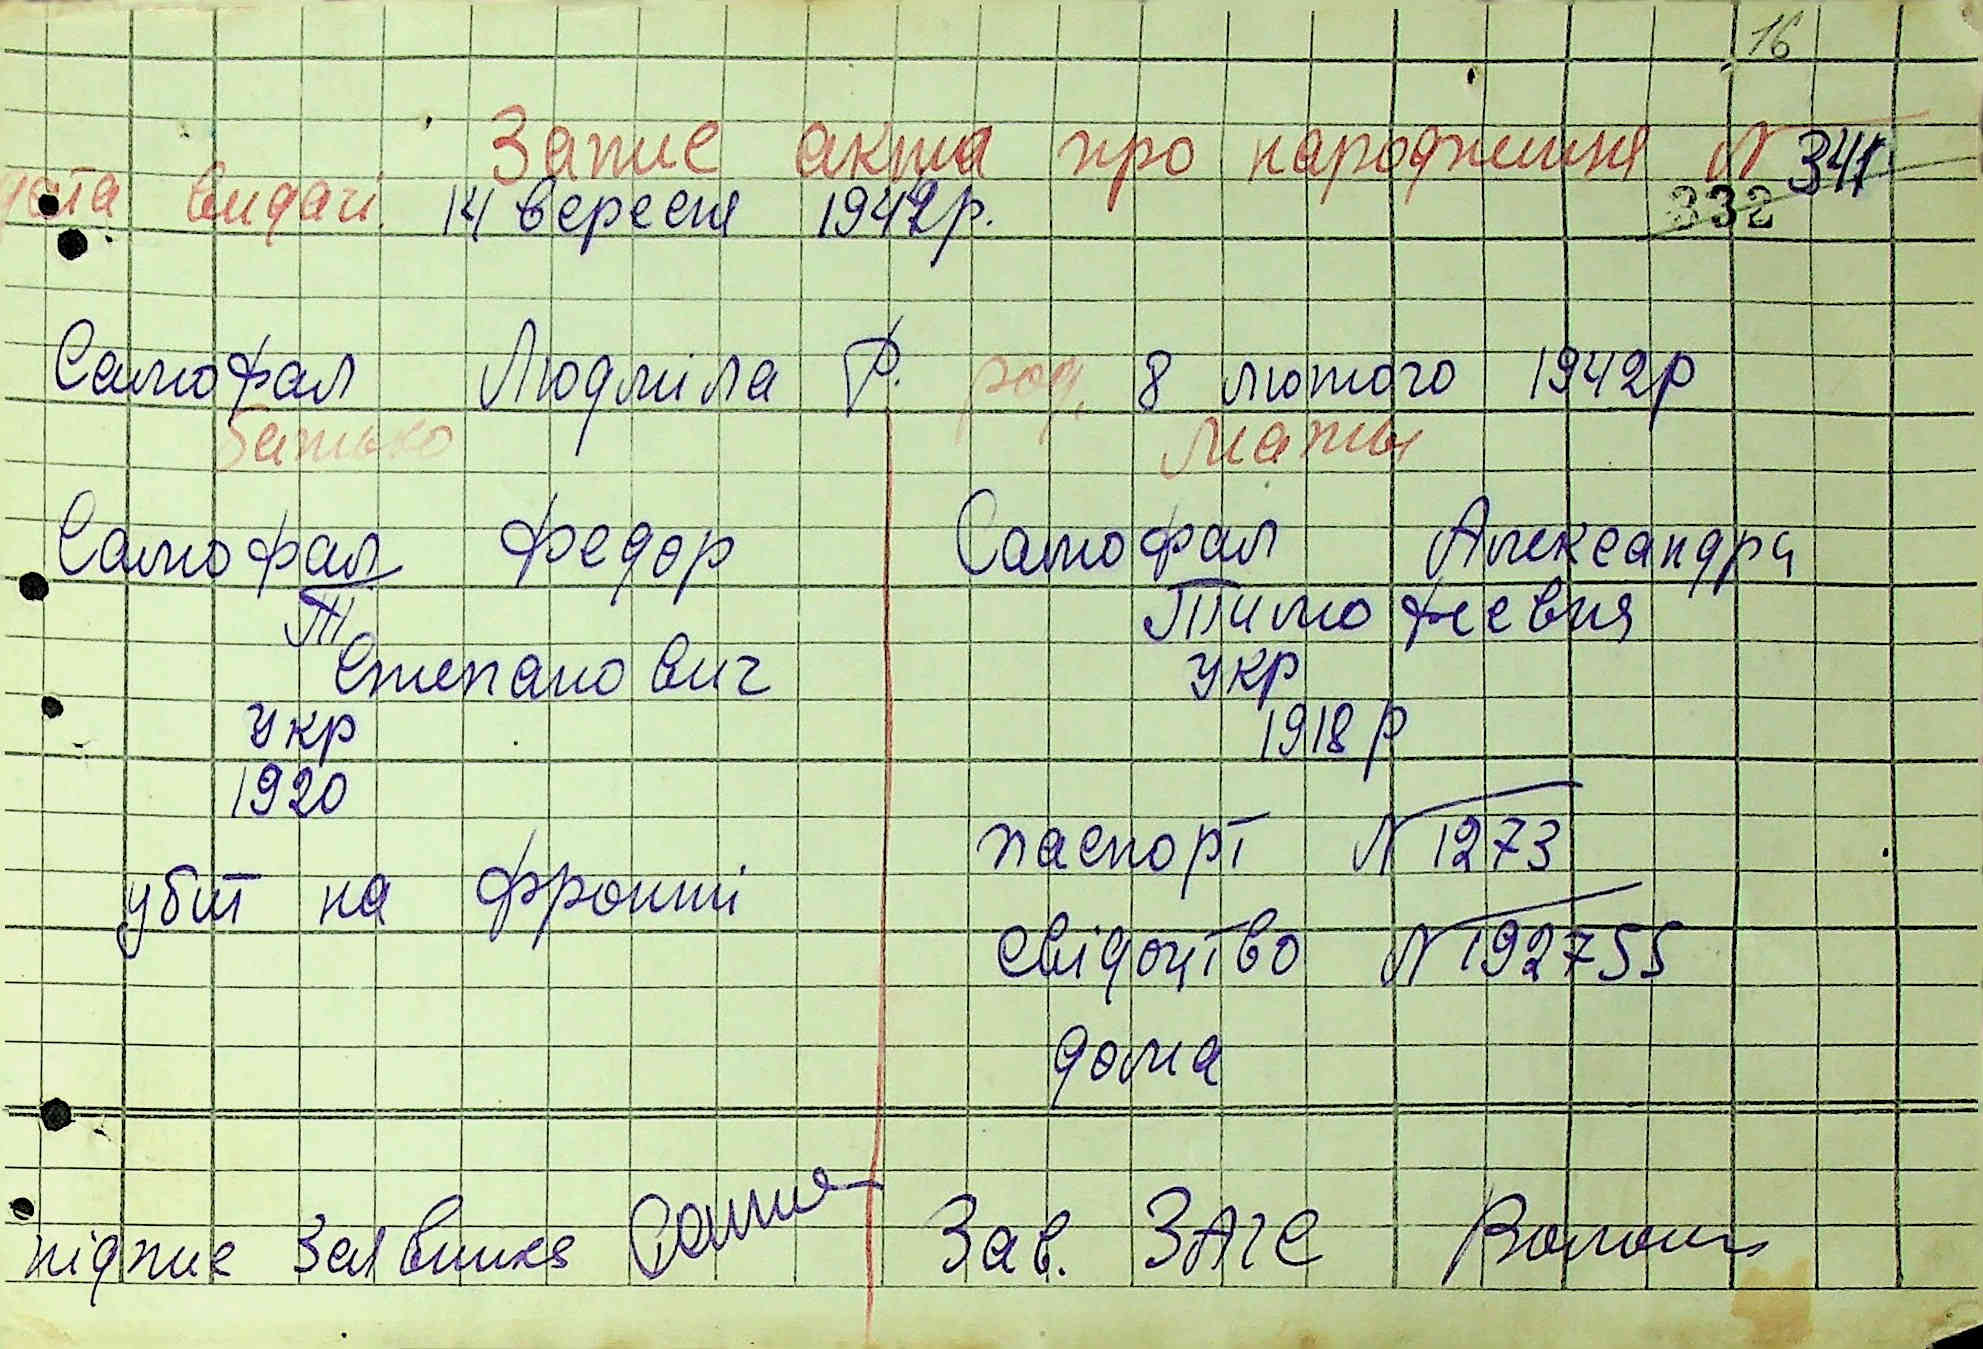 16
Запис акта про народження N 341
дата видачі. 14 вересня 1942р.
332
Самофал Людміла Ф. род. 8 лютого 1942р
батько мати
Самофал Федор Самофал Александра
Т Тимофеевня
Степанович укр
укр 1918 р
1920
паспорт N 1273
убит на фронті
свідоцтво N 192755
дома
підпис Заявника Зав. ЗАГС